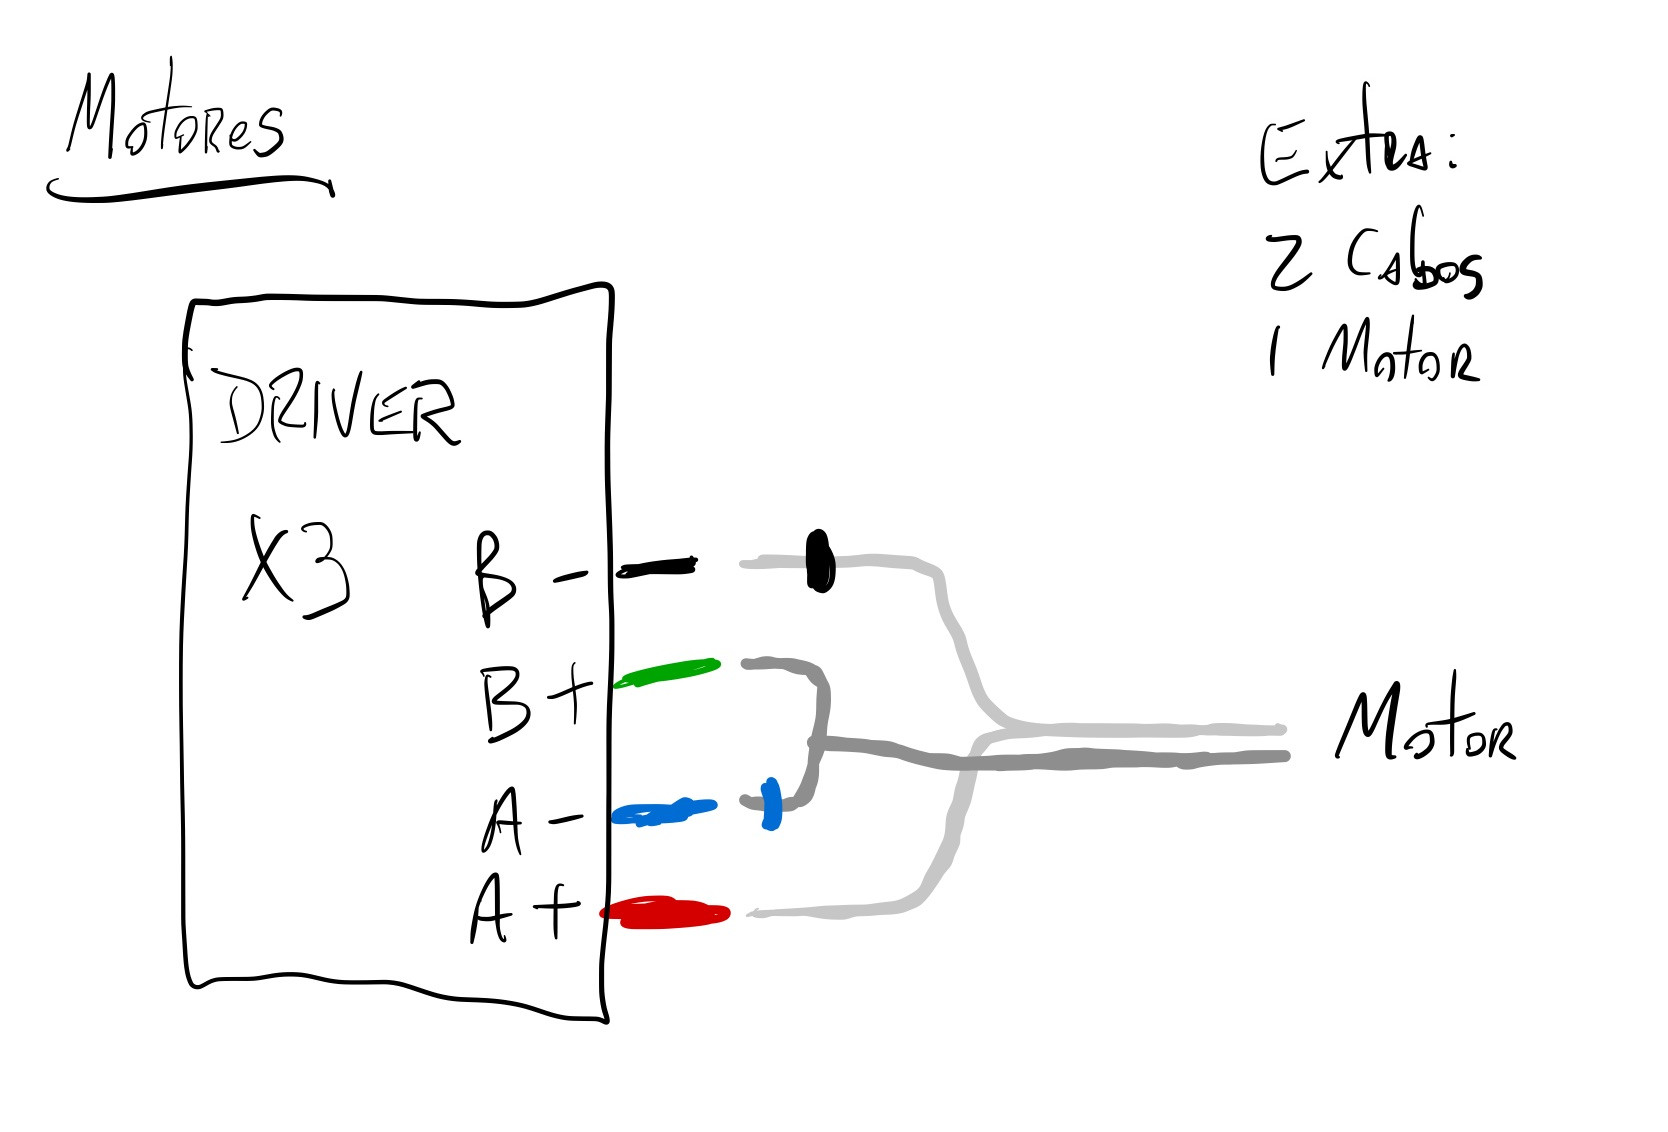 Motores
Extra:
2 Cabos
1 Motor
DRIVER
X3
B -
B +
A -
A +
Motor